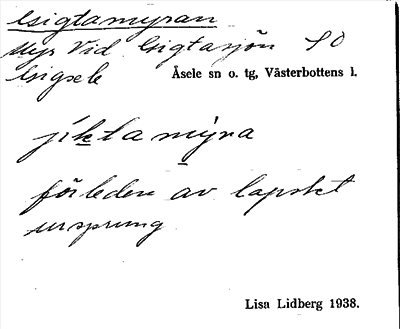 Gigtamyran
Myr vid Gigtasjön SO
Gigsele Åsele sn o. tg, Västerbottens l.
jiktamýra
förleden av lapskt
ursprung
Lisa Lidberg 1938.